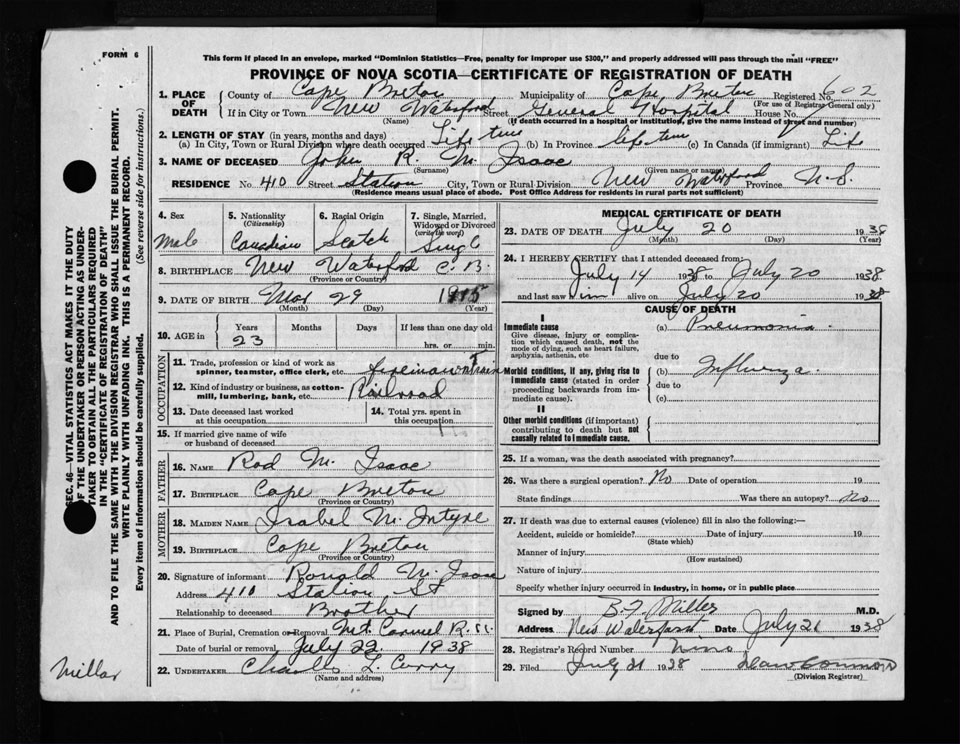 FORM 6
This form if placed in an envelope, marked "Dominion Statistics—Free, penalty for improper use $300," and properly addressed will pass through the mail "FREE"
PROVINCE OF NOVA SCOTIA—CERTIFICATE OF REGISTRATION OF DEATH
1. PLACE OF DEATH
County of Cape Breton Municipality of Cape Breton Registered No. 602
(For use of Registrar General only)
If in City or Town New Waterford Street General Hospital House No.
(Name) (If death occurred in a hospital or institution, give the name instead of street and number)
2. LENGTH OF STAY (in years, months and days)
(a) In City, Town or Rural Division where death occurred Life time (b) In Province life time (c) In Canada (if immigrant) Life
3. NAME OF DECEASED John R. Mc Isaac
(Surname) (Given name or names)
RESIDENCE No. 410 Street Station City, Town or Rural Division New Waterford Province N.S.
(Residence means usual place of abode. Post Office Address for residents in rural parts not sufficient)
4. Sex Male
5. Nationality (Citizenship) Canadian
6. Racial Origin Scotch
7. Single, Married, Widowed or Divorced (write the word) Single
8. BIRTHPLACE New Waterford C.B.
(Province or Country)
9. DATE OF BIRTH Mar 29 1915
(Month) (Day) (Year)
10. AGE in Years 23 Months Days If less than one day old hrs. or min.
OCCUPATION
11. Trade, profession or kind of work as spinner, teamster, office clerk, etc. fireman on Train
12. Kind of industry or business, as cotton-mill, lumbering, bank, etc. Railroad
13. Date deceased last worked at this occupation
14. Total yrs. spent in this occupation
15. If married give name of wife or husband of deceased
FATHER
16. NAME Rod Mc Isaac
17. BIRTHPLACE Cape Breton
(Province or Country)
MOTHER
18. MAIDEN NAME Isabel Mc Intyre
19. BIRTHPLACE Cape Breton
(Province or Country)
20. Signature of informant Ronald Mc Isaac
Address 410 Station St
Relationship to deceased Brother
21. Place of Burial, Cremation or Removal Mt. Carmel
Date of burial or removal July 22 1938
22. UNDERTAKER Charles L. Curry
(Name and address)
MEDICAL CERTIFICATE OF DEATH
23. DATE OF DEATH July 20 1938
(Month) (Day) (Year)
24. I HEREBY CERTIFY that I attended deceased from:
July 14 1938 to July 20 1938
and last saw him alive on July 20 1938
CAUSE OF DEATH
I
Immediate cause
Give disease, injury or complication which caused death, not the mode of dying, such as heart failure, asphyxia, asthenia, etc
(a) Pneumonia
due to
Morbid conditions, if any, giving rise to immediate cause (stated in order proceeding backwards from immediate cause).
(b) Influenza
due to
(c)
II
Other morbid conditions (if important) contributing to death but not causally related to immediate cause.
25. If a woman, was the death associated with pregnancy?
26. Was there a surgical operation? No Date of operation 19
State findings Was there an autopsy? No
27. If death was due to external causes (violence) fill in also the following:—
Accident, suicide or homicide? Date of injury 19
(State which)
Manner of injury
(How sustained)
Nature of injury
Specify whether injury occurred in industry, in home, or in public place
Signed by B.F. Miller M.D.
Address New Waterford Date July 21 1938
28. Registrar's Record Number
29. Filed July 21 1938
(Division Registrar)
SEC. 46—VITAL STATISTICS ACT MAKES IT THE DUTY
OF THE UNDERTAKER OR PERSON ACTING AS UNDER-
TAKER TO OBTAIN ALL THE PARTICULARS REQUIRED
IN THE "CERTIFICATE OF REGISTRATION OF DEATH"
AND TO FILE THE SAME WITH THE DIVISION REGISTRAR WHO SHALL ISSUE THE BURIAL PERMIT.
WRITE PLAINLY WITH UNFADING INK. THIS IS A PERMANENT RECORD.
Every item of information should be carefully supplied. (See reverse side for instructions.)
Millar